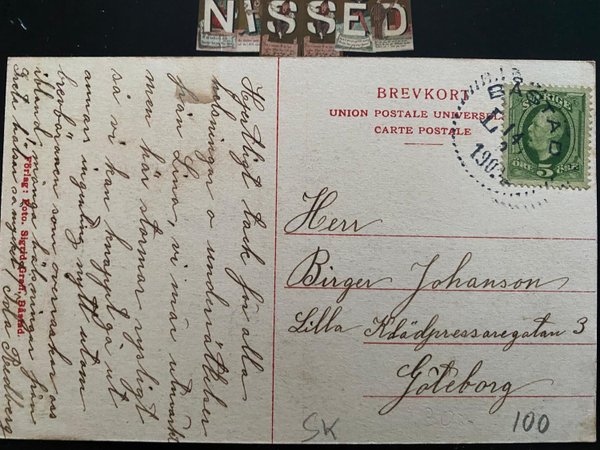 NISSED
BREVKORT
UNION POSTALE UNIVERSELLE
CARTE POSTALE
BÅSTAD
SVERIGE
5
Herr
Birger Johanson
Lilla Klädpressaregatan 3
Göteborg
SK
100
Hjertligt tack för alla
helsningar o underrättelser
från Lina, vi mår utmärkt
men här stormar rysligt
så vi kan knappt gå ut
annars ingenting nytt utom
brevbäraren som överraskar oss
ibland, många helsningar från
Förlag: Foto. Sigrid Graff, Båstad.